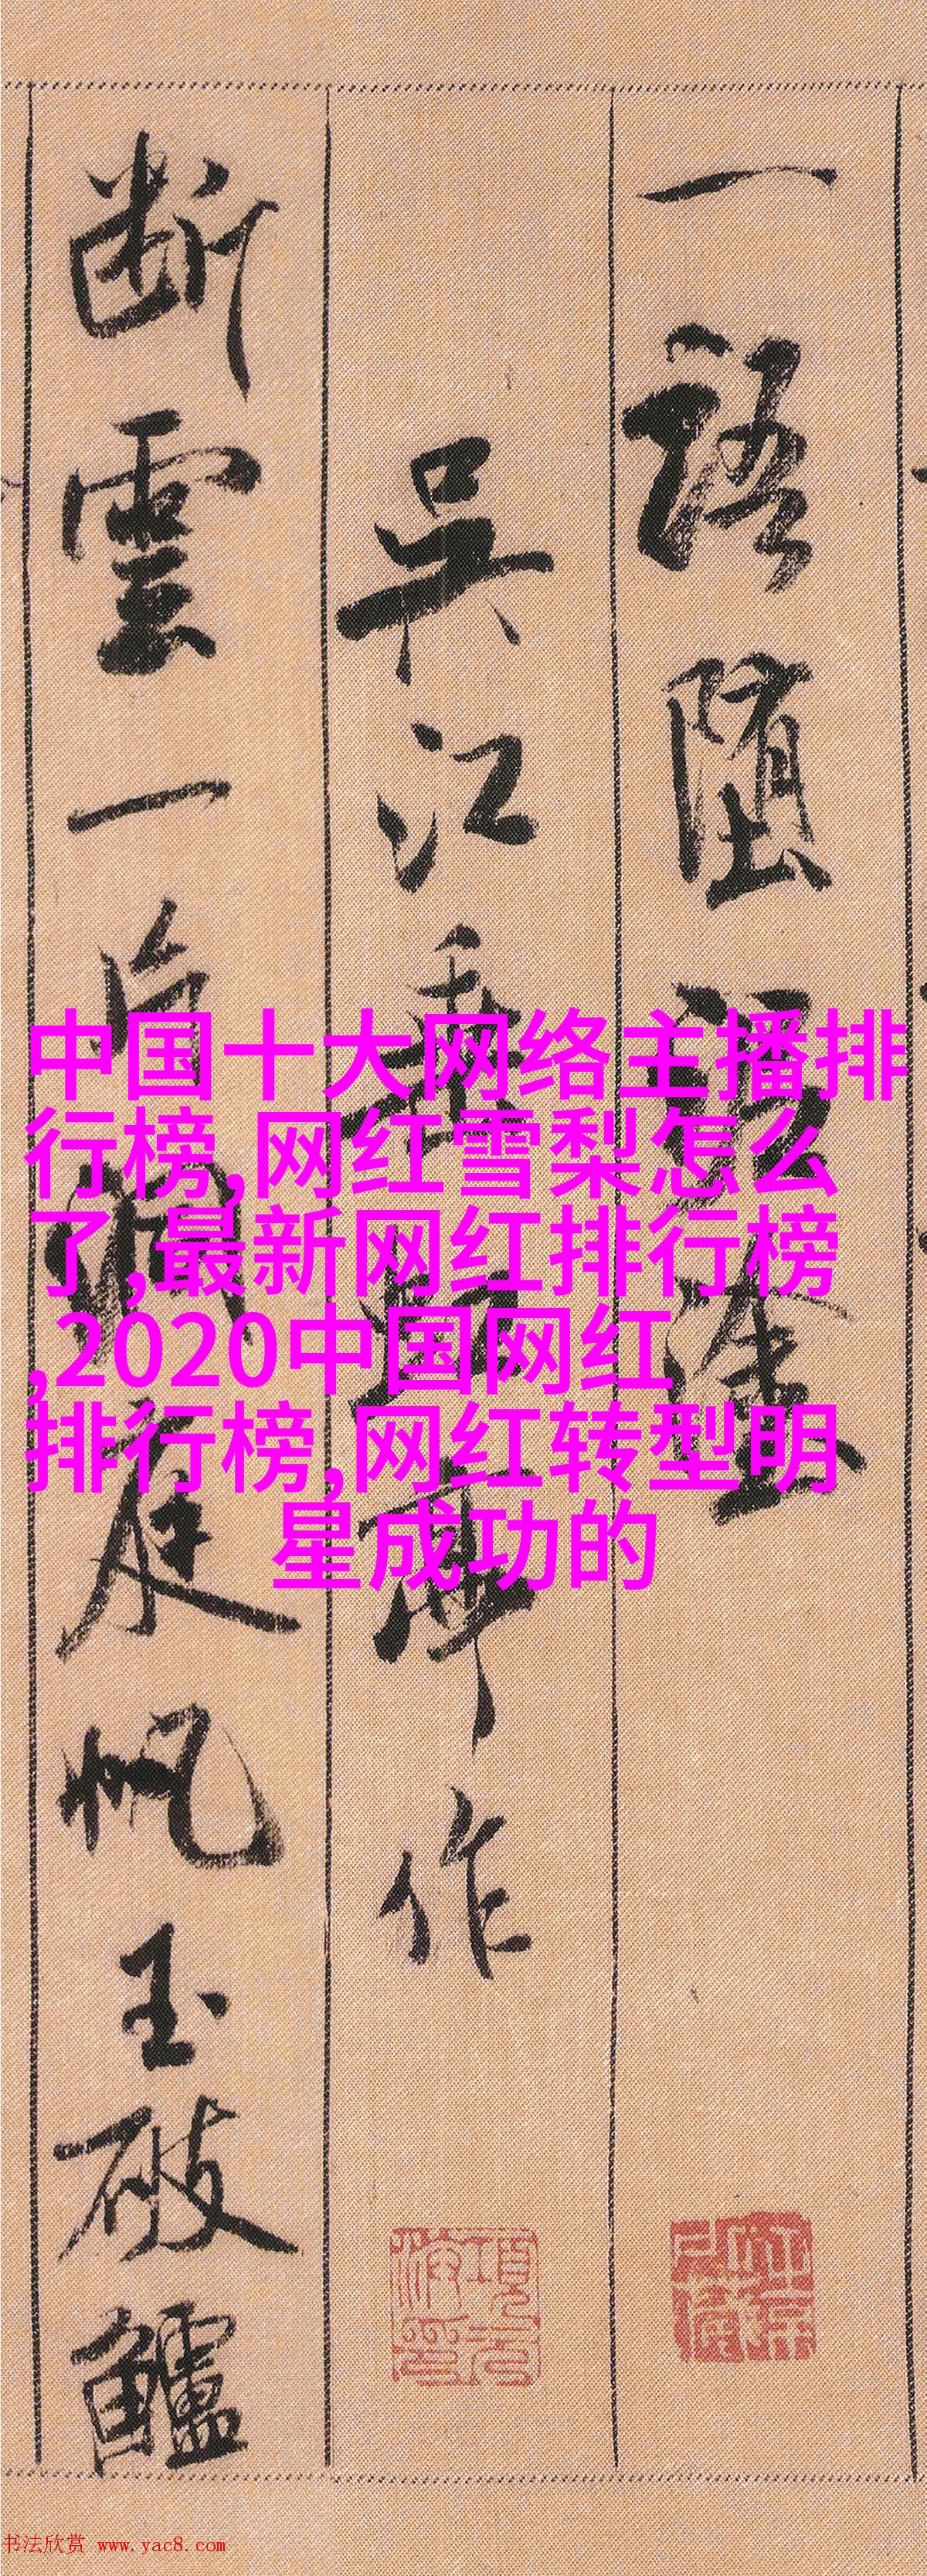 一語墮泥塗
吳江垂虹亭作
断雲一片洞庭帆玉破鱸
中国十大网络主播排
行榜,网红雪梨怎么
了,最新网红排行榜
,2020中国网红
排行榜,网红转型明
星成功的
书法欣赏 www.yac8.com